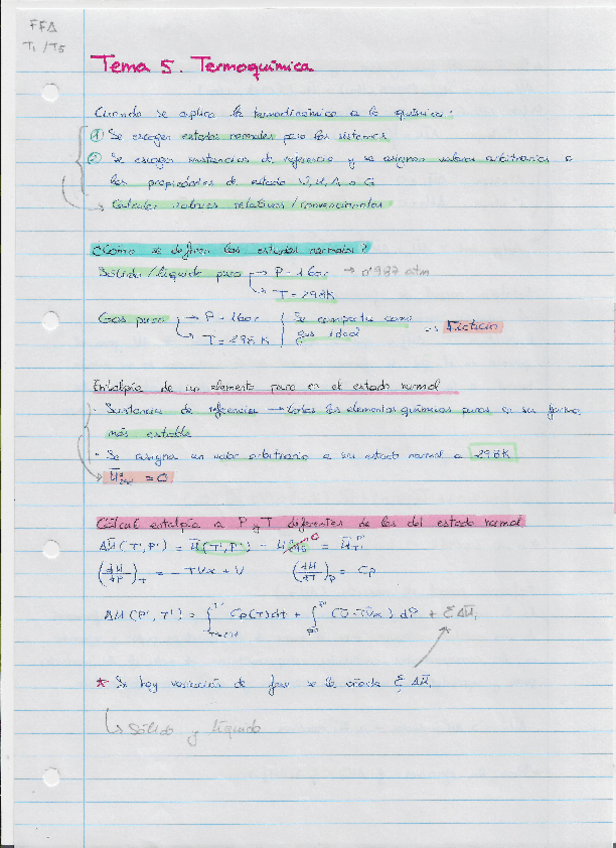 FFA
T1/T5
Tema 5. Termoquímica
Cuando se aplica la termodinámica a la química:
① Se escogen estados normales para los sistemas
② Se escogen sustancias de referencia y se asignan valores arbitrarios a
las propiedades de estado U, H, A o G
→ Calcular valores relativos/convencionales
¿Cómo se definen los estados normales?
Sólido/líquido puro → P = 1 bar → 0'987 atm
↳ T = 298K
Gas puro → P = 1 bar } Se comporta como
↳ T = 298K gas ideal → Ficticio
Entalpía de un elemento puro en el estado normal
- Sustancia de referencia → todos los elementos químicos puros en su forma
más estable
- Se asigna un valor arbitrario a su estado normal a 298K
→ H̄°298 = 0
Cálcul entalpía a P y T diferentes de las del estado normal
ΔH̄(T',P') = H̄(T',P') - H̄°298 = H̄
(dH/dP)T = -TVα + V (dH/dT)P = Cp
ΔH(P',T') = ∫ Cp(T)dT + ∫ (V̄-TV̄α) dP + ΣΔH̄
* Si hay variación de fase se le añade Σ ΔH̄
↳ Sólido y líquido